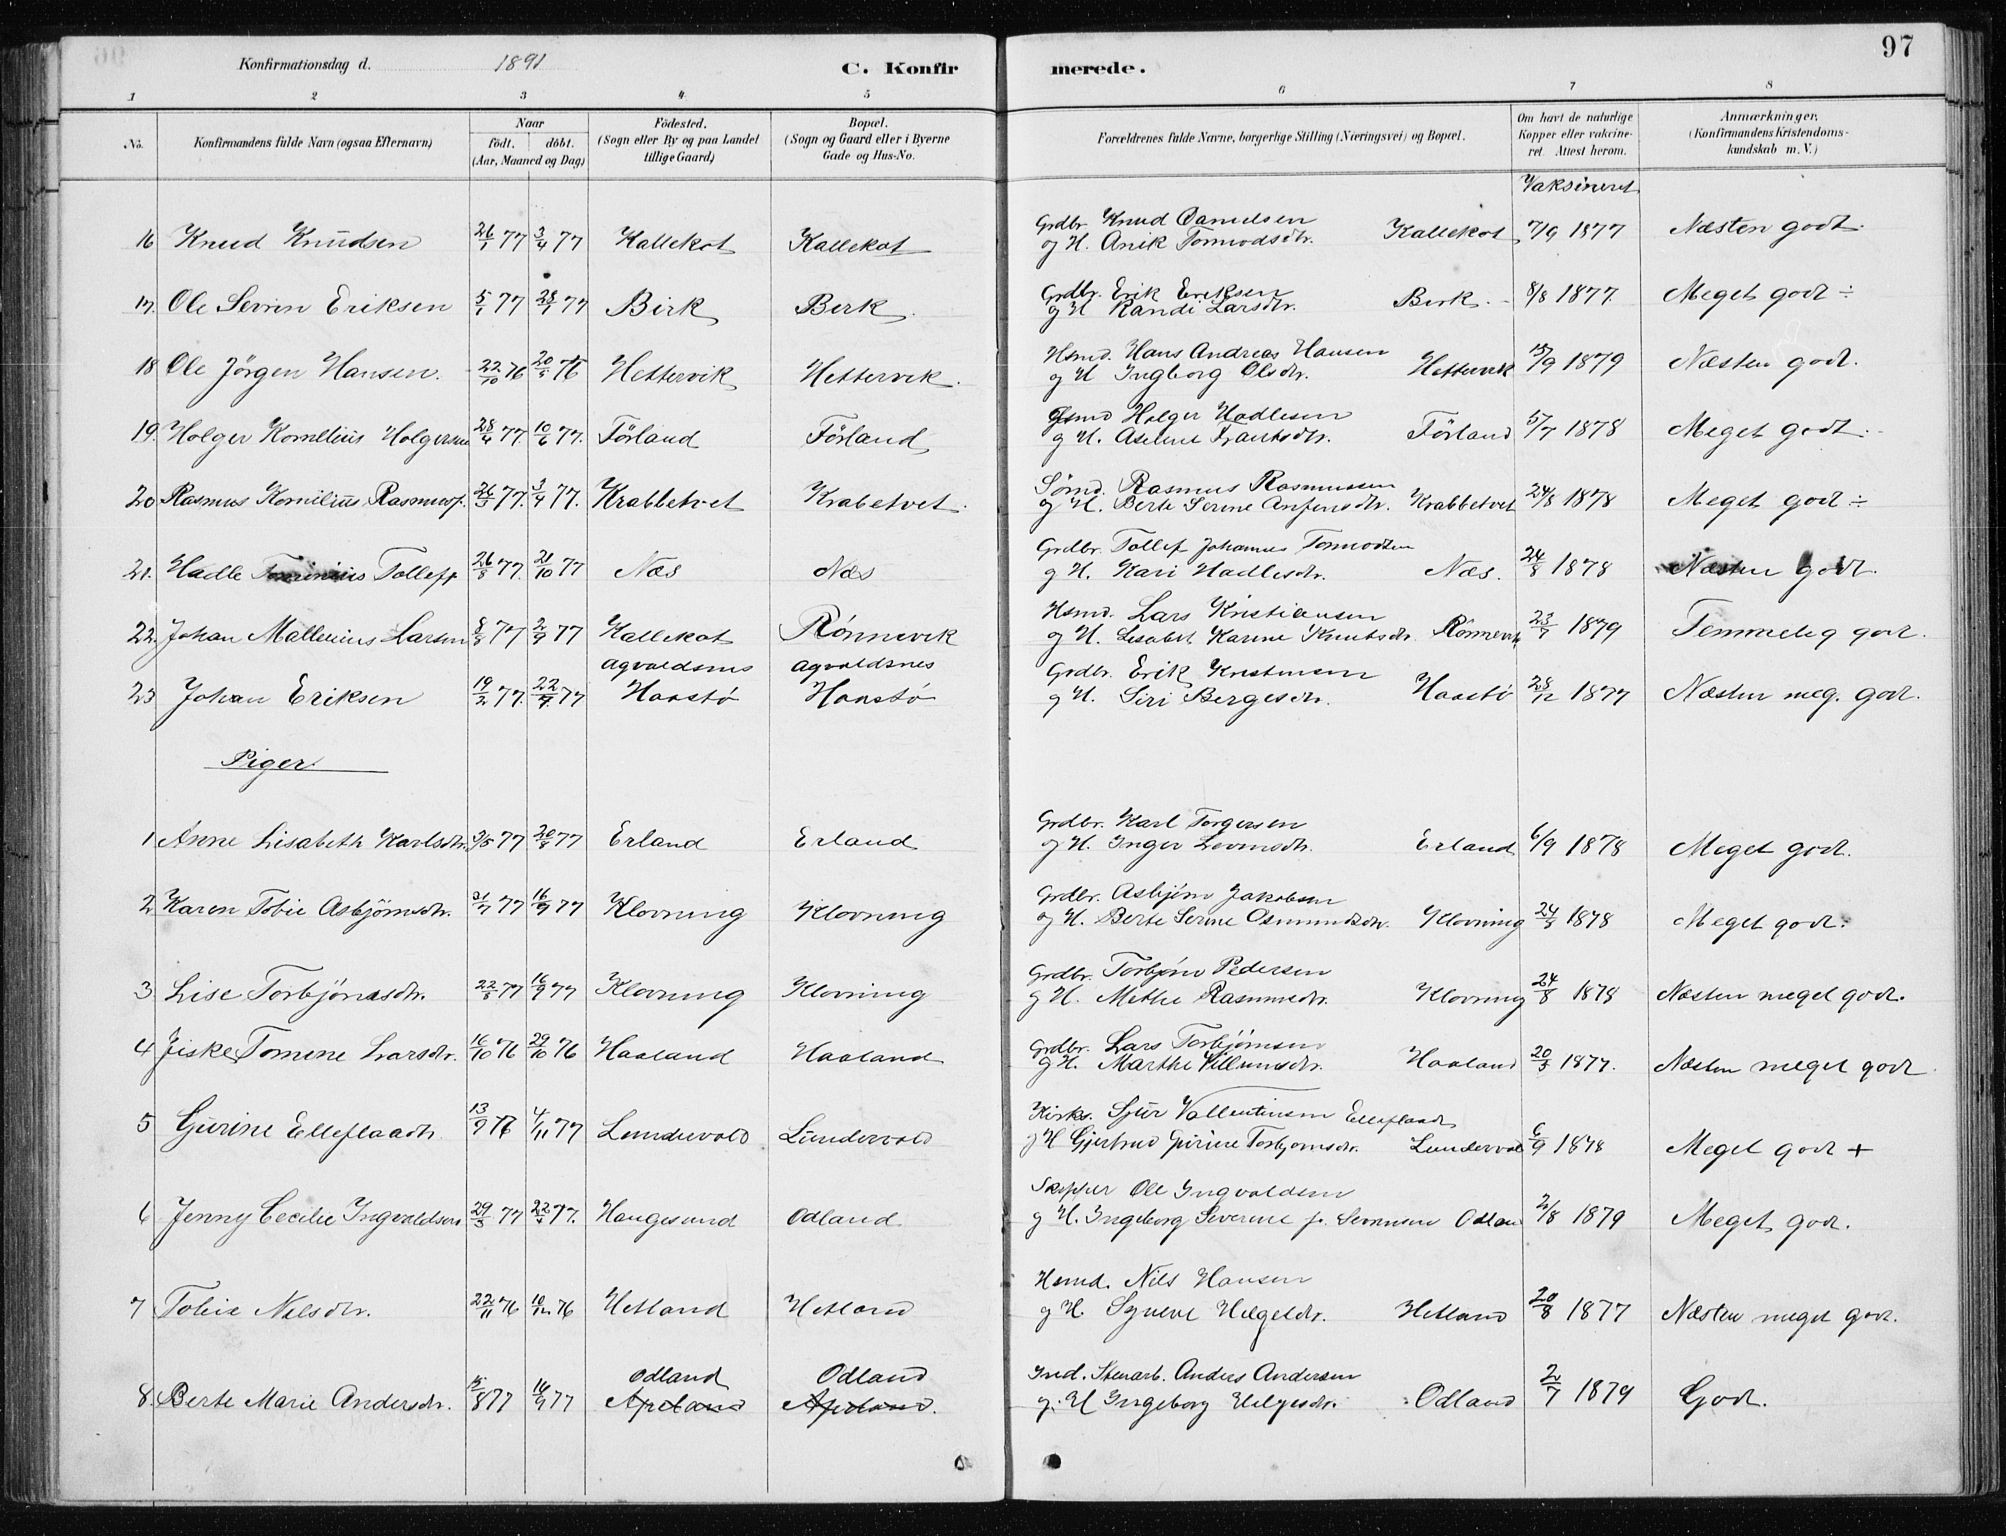 97
Konfirmationsdag d. 1891 C. Konfir merede.
1 2 3 4 5 6 7 8
No. Konfirmandens fulde Navn (ogsaa Efternavn) Naar födt. döbt. (Aar, Maaned og Dag) Födested. (Sogn eller By og paa Landet tillige Gaard) Bopæl. (Sogn og Gaard eller i Byerne Gade og Hus-No. Forældrenes fulde Navne, borgerlige Stilling (Næringsvei) og Bopæl. Om havt de naturlige Kopper eller vakcineret. Attest herom. Anmærkninger. (Konfirmandens Kristendomskundskab m. V.)
Vaksineret
16 Knud Knudsen 26/1 77 3/4 77 Kallekot Kallekot Grdbr. Knud Danielsen og H. Anik Tormodsdtr. Kallekot 7/9 1877 Næsten godt.
17. Ole Sevrin Eriksen 5/1 77 28/1 77 Birk Berk Grdbr. Erik Eriksen og H Randi Larsdtr. Berk. 8/8 1877. Meget godt ÷
18 Ole Jörgen Hansen. 22/10 76 76 Hettervik Hettervik. Hsmd. Hans Andreas Hansen og H Ingborg Olsdtr. Hettervik 1879 Næsten godt.
19. Holger Kornelius Holgersen 28/4 77. 10/6 77. Förland Förland Holger Hadlesen og H. Aseline Frantsdtr. Förland 5/7 1878 Meget godt.
20 Rasmus Kornilius Rasmuss. 26/3 77. 3/4 77. Krabbetvet Krabetvet. Rasmus Rasmussen og H. Berte Serine Krabbetvet 24/8 1878 Meget godt ÷
21. Hadle Tollefs. 26/8 77. 21/10 77 Næs Næs Grdbr. Tollef Johannes Tormodsen og H. Kari Hadlesdtr. Næs. 24/8 1878 Næsten godt.
22. Johan Mallenius Larsen 8/8 77 2/9 77 Kallekot Rönnevik Hsmd. Lars Kristiansen og H. Lisabet Karine Knutsdtr. Rönnevik 23/7 1879 Temmelig godt.
23 Johan Eriksen 19/2 77. 22/4 77 Agvaldsnes Haastö Agvaldsnes Haastö Grdbr. Erik Kristensen og H. Siri Bergesdtr. Haastö 28/12 1877 Næsten meg. godt.
Piger
1 Anne Lisabeth Karlsdtr. 3/5 77 77 Erland Erland Grdbr. Karl Torgersen og H. Inger Erland 6/9 1878 Meget godt.
2 Karen Tobie Asbjörnsdtr. 31/7 77 16/9 77 Klovning Klovning Grdbr. Asbjörn Jakobsen og H. Berte Serine Osmundsdtr. Klovning 24/8 1878 Meget godt.
3 Lise Torbjörnsdtr. 22/8 77 16/9 77 Klovning Klovning Grdbr. Torbjörn Pedersen og H. Methe Rasmusdtr. Klovning 24/8 1878 Næsten meget godt.
4 Jiske Tomine Larsdtr. 16/10 76 29/10 76 Haaland Haaland Grdbr. Lars Torbjörnsen og H. Marthe Villumsdtr. Haaland 1877. Næsten meget godt
5 Gurine Elleflaadt. 13/9 76 4/11 77 Lundervold Lundervold Kirkes. Sjur Vallentinsen Elleflaadt og H Gjertrud Guriene Torbjornsdtr. Lundervold 6/9 1878 Meget godt +
6 Jenny Cecilie Ingvaldsen 29/3 77 22/4 77. Haugesund Odland Skipper Ole Ingvaldsen og H. Ingeborg Severine f. Sevrinsen Odland 2/8 1879 Meget godt.
7 Tobie Nilsdtr. 22/11 76 10/12 76 Hetland Hetland Hsmd. Nils Hansen og H. Syneve Helgesdtr. Hetland 20/8 1877 Næsten meget godt.
8. Berte Marie Andersdtr. 77 16/9 77 Odland Apeland Odland Apeland. Ind. Stenarb. Anders Andersen og H Ingeborg Helgesdtr. Odland 2/7 1879 Godt.